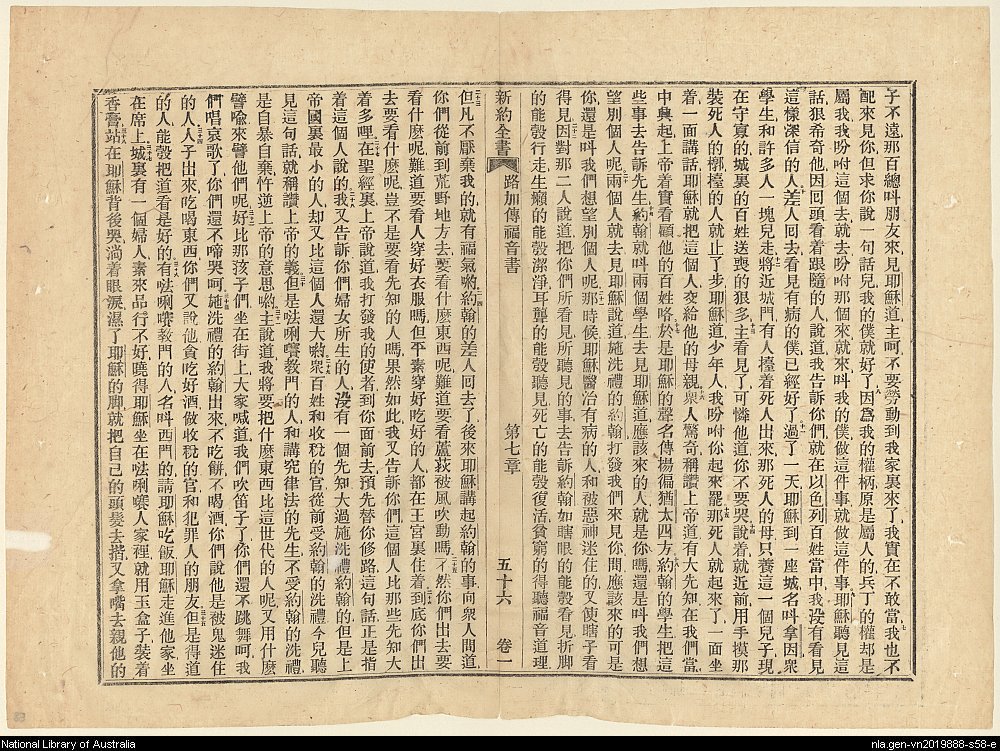 子不遠那百總呌朋友來見耶穌道主呵不要勞動到我家裏來了我實在不敢當我也不
配來見你但求你說一句話兒我的僕就好了因爲我的權柄原是屬人的兵丁的權却是
屬我我吩咐這個去就去吩咐那個來就來呌我的僕做這件事就做這件事耶穌聽見這
話狠希奇他因囘頭看着跟隨的人說道我告訴你們就在以色列百姓當中我没有看見
這樣深信的人差人回去看見有病的僕已經好了過了一天耶穌到一座城名呌拿因衆
學生和許多人一塊兒走將近城門有人擡着死人出來那死人的母只養這一個兒子現
在守寡的城裏的百姓送喪的狠多主看見了可憐他道你不要哭說着就近前用手摸那
裝死人的槨擡的人就止了步耶穌道少年人我吩咐你起來罷那死人就起來了一面坐
着一面講話耶穌就把這個人交給他的母親衆人驚奇稱讚上帝道有大先知在我們當
中興起上帝着實看顧他的百姓咯於是耶穌的聲名傳揚徧猶太四方約翰的學生把這
些事去告訴先生約翰就呌兩個學生去見耶穌道應該來的人就是你嗎還是呌我們想
望別個人呢兩個人就去見耶穌說道施洗禮的約翰打發我們來見你間應該來的可是
你還是呌我們想望別個人呢那時候耶穌醫治有病的人和被惡神迷住的又使瞎子看
得見因對那二人說道把你們所看見所聽見的事去告訴約翰如瞎眼的能彀看見折脚
的能彀行走生癩的能彀潔淨耳聾的能彀聽見死亡的能彀復活貧窮的得聽福音道理
新約全書 路加傳福音書 第七章 五十六 卷一
但凡不厭棄我的就有福氣喲約翰的差人回去了後來耶穌講起約翰的事向衆人間道
你們從前到荒野地方去要看什麼東西呢難道要看蘆荻被風吹動嗎不然你們出去要
看什麼呢難道要看人穿好衣服嗎但平素穿好吃好的人都在王宮裏住着到底你們出
去要看什麼呢豈不是要看先知的人嗎果然如此我又告訴你們這個人比那些先知大
着多哩在聖經裏上帝說道我打發我的使者到你面前去預先替你修路這句話正是指
着這個人說的我又告訴你們婦女所生的人没有一個先知大過施洗禮約翰的但是上
帝國裏最小的人却又比這個人還大喲衆百姓和收稅的官從前受約翰的洗禮今兒聽
見這句話就稱讚上帝的義但是𠵽唎㘔教門的人和講究律法的先生不受約翰的洗禮
是自暴自棄忤逆上帝的意思喲主說道我將要把什麼東西比這世代的人呢又用什麼
譬喩來譬他們呢好比那孩子們坐在街上大家喊道我們吹笛子了你們還不跳舞呵我
們唱哀歌了你們還不啼哭呵施洗禮的約翰出來不吃餅不喝酒你們說他是被鬼迷住
的人人子出來吃喝東西你們又說他貪吃好酒做收稅的官和犯罪人的朋友但是得道
的人能彀把道看是好的有𠵽唎㘔教門的人名呌西門的請耶穌吃飯耶穌走進他家坐
在席上城裏有一個婦人素來品行不好曉得耶穌坐在𠵽唎㘔人家裡就用玉盒子裝着
香膏站在耶穌背後哭淌着眼淚濕了耶穌的脚就把自己的頭髮去揩又拿嘴去親他的
National Library of Australia
nla.gen-vn2019888-s58-e